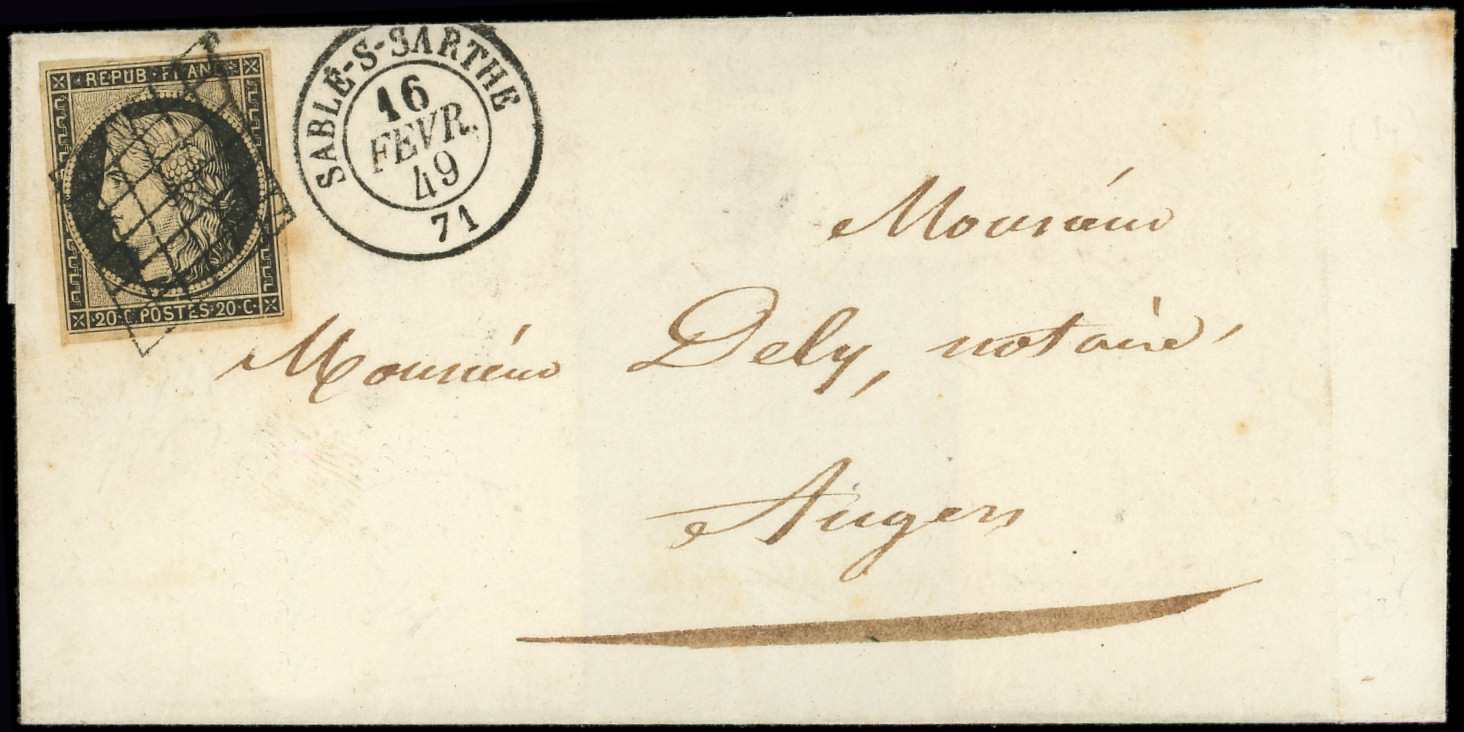 REPUB·FRANC
20·C·POSTES·20·C·
SABLÉ-S-SARTHE
16
FEVR.
49
71
Monsieur
Monsieur Dely, notaire,
Angers